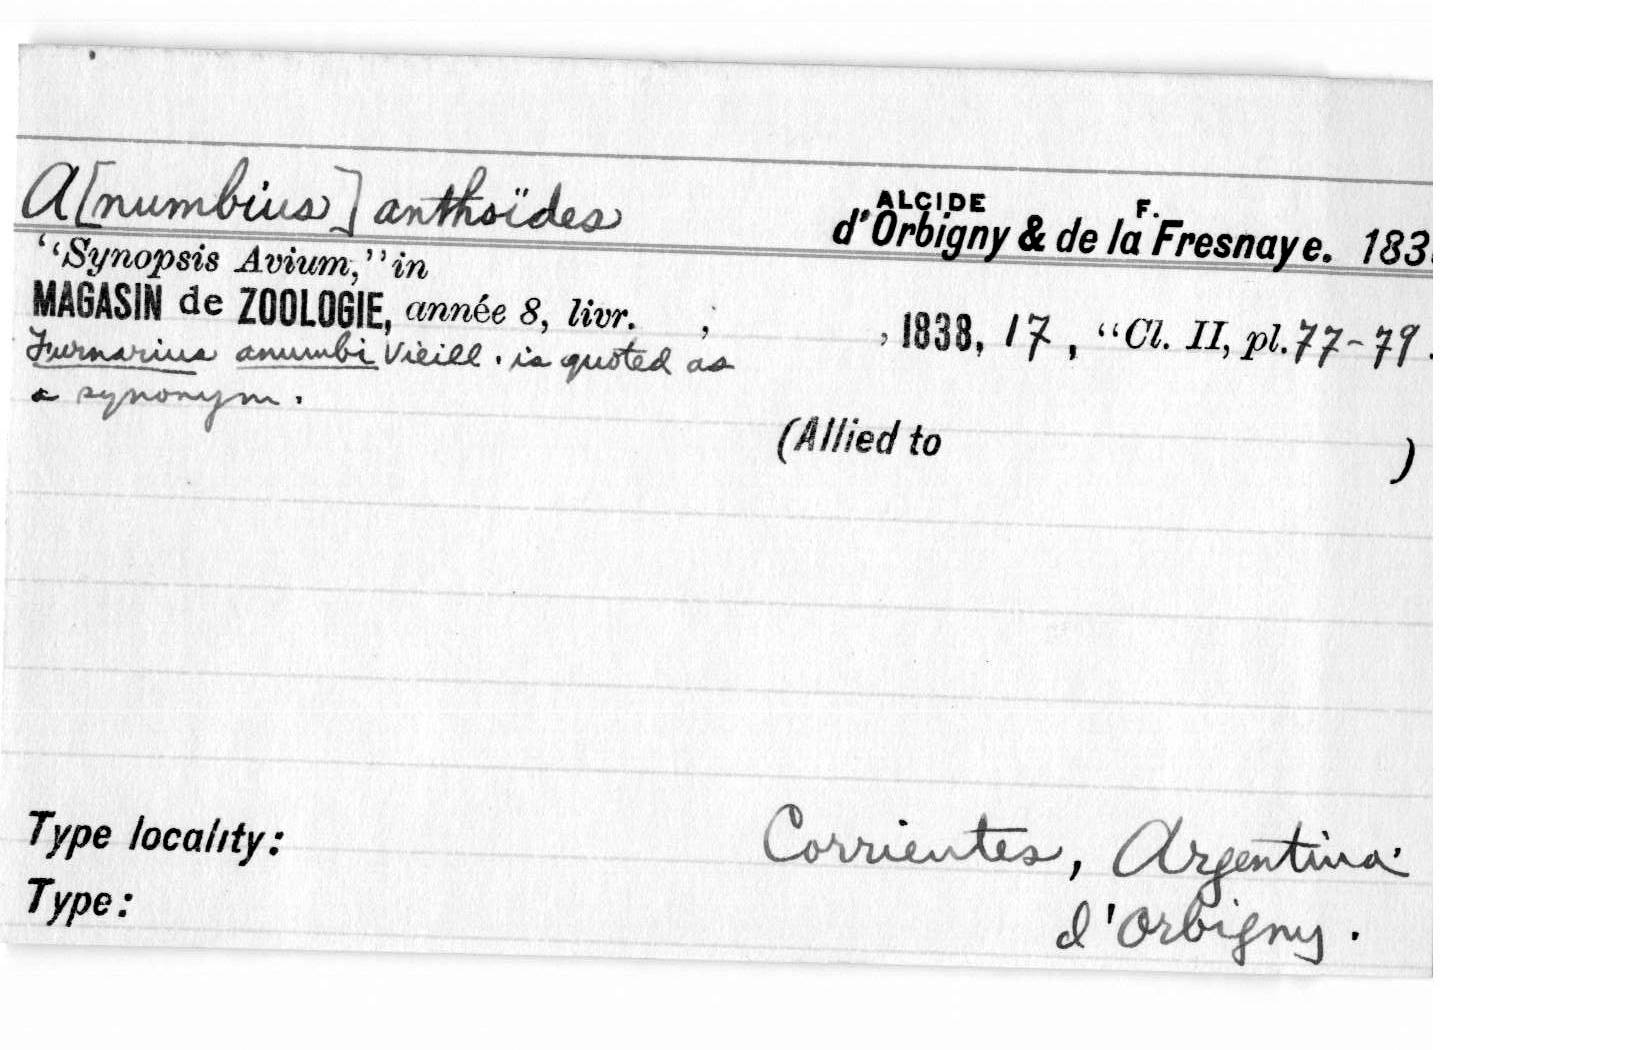 A[numbius] anthoïdes ALCIDE d'Orbigny & F. de la Fresnaye. 183
"Synopsis Avium," in
MAGASIN de ZOOLOGIE, année 8, livr. , , 1838, 17, "Cl. II, pl. 77-79.
Furnarius anumbi Vieill. is quoted as
a synonym.
(Allied to )
Type locality: Corrientes, Argentina.
Type: d'Orbigny.